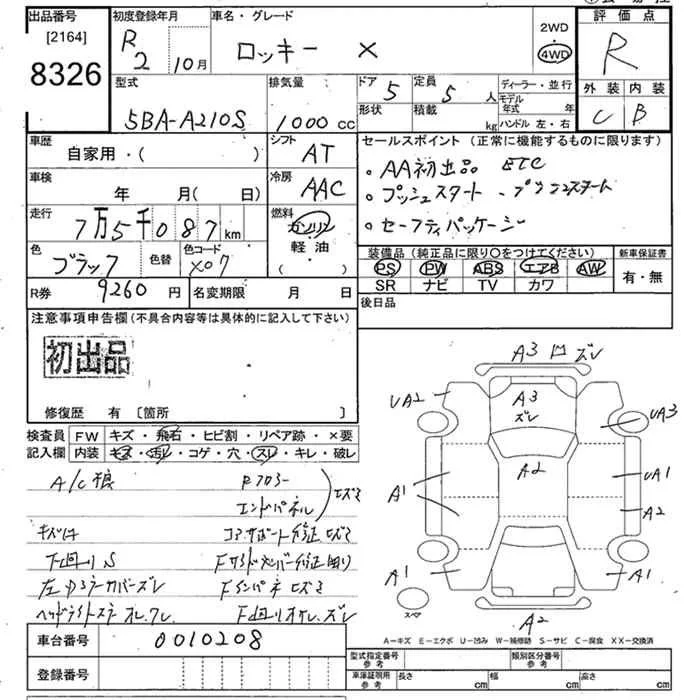 出品番号
[2164]
8326
初度登録年月
R 2 10月
車名・グレード
ロッキー X
2WD
4WD
評価点
R
外装 内装
C B
型式
5BA-A210S
排気量
1000 cc
ドア 5
定員 5 人
形状
積載 kg
ディーラー・並行
モデル年式 年
ハンドル 左・右
車歴
自家用・( )
シフト
AT
車検
年 月( 日)
冷房
AAC
走行
7万5千087km
燃料
ガソリン
軽・油
( )
色
ブラック
色替
色コード
X07
R券 9260 円
名変期限 月 日
セールスポイント(正常に機能するものに限ります)
・AA初出品 ETC
・プッシュスタート
・セーフティパッケージ
装備品(純正品に限り〇をつけてください)
PS PW ABS エアB AW
SR ナビ TV カワ
新車保証書
有・無
後日品
注意事項申告欄(不具合内容等は具体的に記入して下さい)
初出品
修復歴 有〔箇所 〕
検査員記入欄
FW キズ・飛石・ヒビ割・リペア跡・×要
内装 キズ・汚レ・コゲ・穴・スレ・キレ・破レ
A/C損 Rフロアー
エンドパネル ヒズミ
キズ凹 コアサポート修正 ヒズミ
下廻りS
Fインパネ ヒズミ
ヘッドライトステー オレ、ワレ F廻りオサレ、ズレ
車台番号 0010208
登録番号
A3 凹 ズレ
UA2
A3
ズレ
UA3
A2
A1
UA1
A2
A1
A1
スペア
A2
A-キズ E-エクボ U-凹み W-補修跡 S-サビ C-腐食 XX-交換済
型式指定番号 参考
類別区分番号 参考
車庫証明用 参考
長さ cm
幅 cm
高さ cm